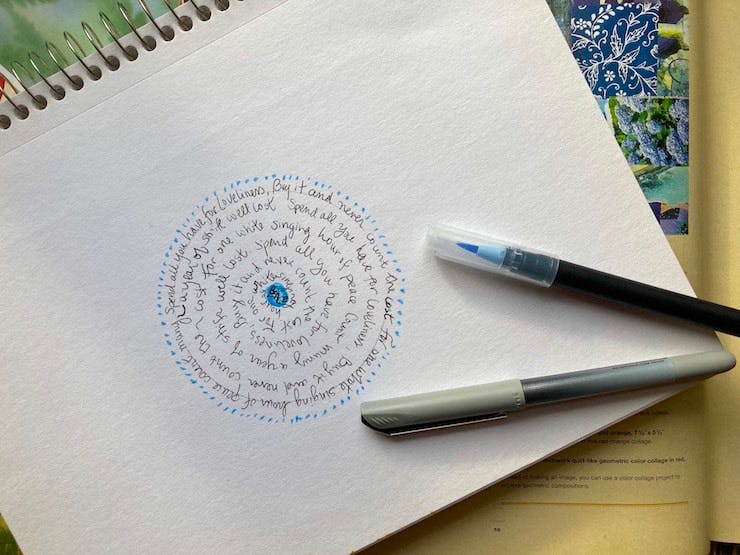 Spend all you have for Loveliness, Buy it and never count the cost for one white singing hour of peace count many
a year of strife well lost Spend all you have for Loveliness, Buy it and never count the cost for one white singing hour of peace Count many a year of strife well lost Spend all you have for Loveliness Buy it and never count the cost for one white singing
orange, 1½" x 5½"
red-orange collage.
quilt-like geometric color collage in red.
making an image, you can use a color collage project to
geometric compositions.